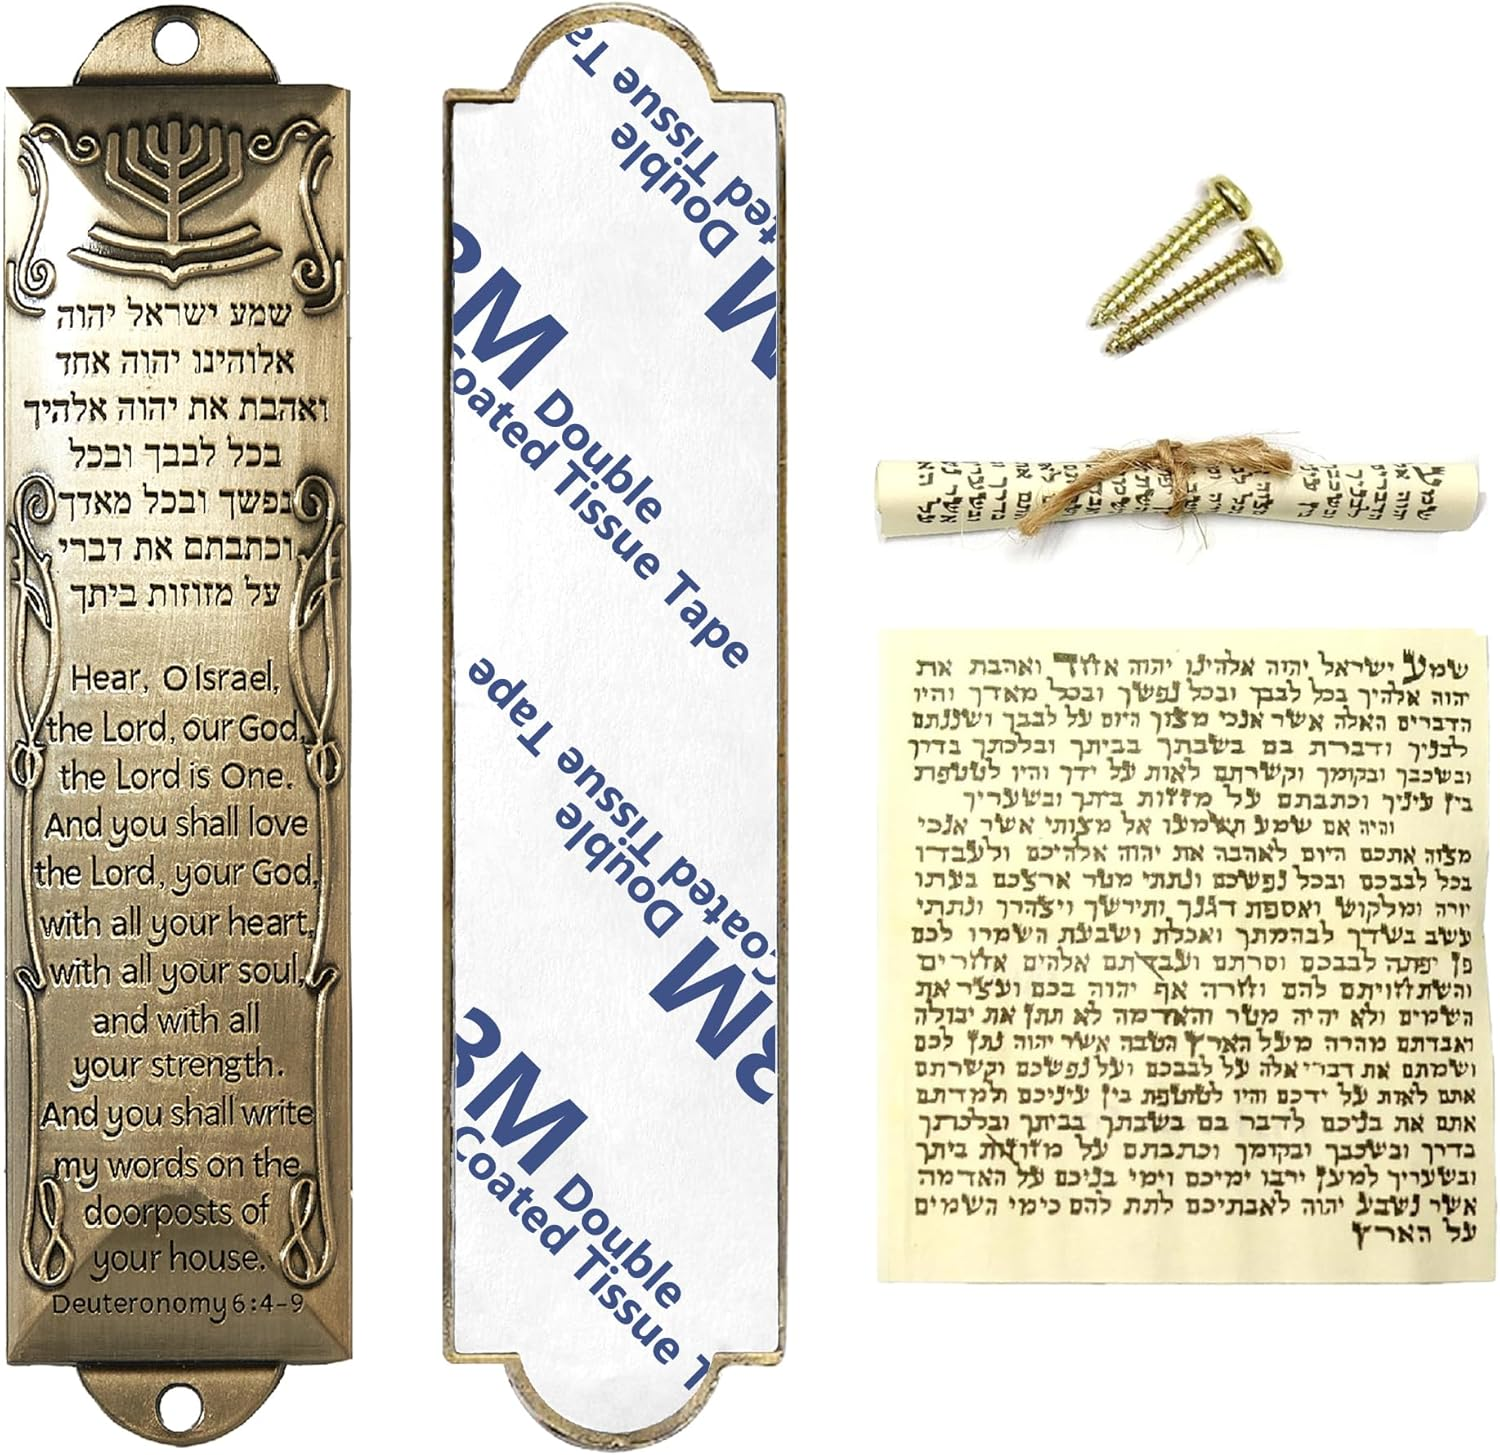 שמע ישראל יהוה
אלוהינו יהוה אחד
ואהבת את יהוה אלהיך
בכל לבבך ובכל
נפשך ובכל מאדך
וכתבתם את דברי
על מזוזות ביתך
Hear, O Israel,
the Lord, our God,
the Lord is One.
And you shall love
the Lord, your God,
with all your heart,
with all your soul,
and with all
your strength.
And you shall write
my words on the
doorposts of
your house.
Deuteronomy 6:4-9
Double
Tissue Ta
3M Double
Coated Tissue Tape
3M Double
Coated Tissue Tape
3M Double
Coated Tissue T
שמע ישראל יהוה אלהינו יהוה אחד ואהבת את
יהוה אלהיך בכל לבבך ובכל נפשך ובכל מאדך והיו
הדברים האלה אשר אנכי מצוך היום על לבבך ושננתם
לבניך ודברת בם בשבתך בביתך ובלכתך בדרך
ובשכבך ובקומך וקשרתם לאות על ידך והיו לטטפת
בין עיניך וכתבתם על מזזות ביתך ובשעריך
והיה אם שמע תשמעו אל מצותי אשר אנכי
מצוה אתכם היום לאהבה את יהוה אלהיכם ולעבדו
בכל לבבכם ובכל נפשכם ונתתי מטר ארצכם בעתו
יורה ומלקוש ואספת דגנך ותירשך ויצהרך ונתתי
עשב בשדך לבהמתך ואכלת ושבעת השמרו לכם
פן יפתה לבבכם וסרתם ועבדתם אלהים אחרים
והשתחויתם להם וחרה אף יהוה בכם ועצר את
השמים ולא יהיה מטר והאדמה לא תתן את יבולה
ואבדתם מהרה מעל הארץ הטבה אשר יהוה נתן לכם
ושמתם את דברי אלה על לבבכם ועל נפשכם וקשרתם
אתם לאות על ידכם והיו לטוטפת בין עיניכם ולמדתם
אתם את בניכם לדבר בם בשבתך בביתך ובלכתך
בדרך ובשכבך ובקומך וכתבתם על מזוזות ביתך
ובשעריך למען ירבו ימיכם וימי בניכם על האדמה
אשר נשבע יהוה לאבתיכם לתת להם כימי השמים
על הארץ